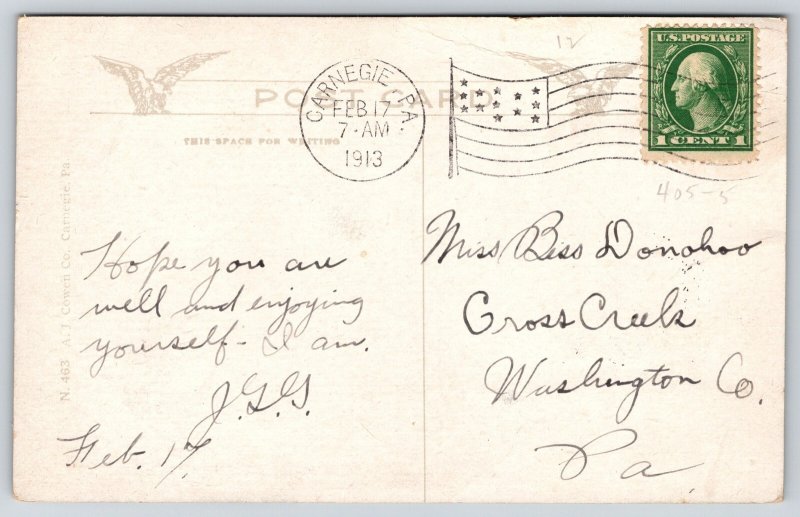 12
U.S. POSTAGE
1 CENT 1
405-5
POST CARD
CARNEGIE, PA.
FEB 17
7-AM
1913
THIS SPACE FOR WRITING
N. 463 A. J. Cowell Co. Carnegie, Pa.
Hope you are
well and enjoying
yourself - I am.
J.G.G.
Feb. 17
Miss Bess Donohoo
Cross Creek
Washington Co.
Pa